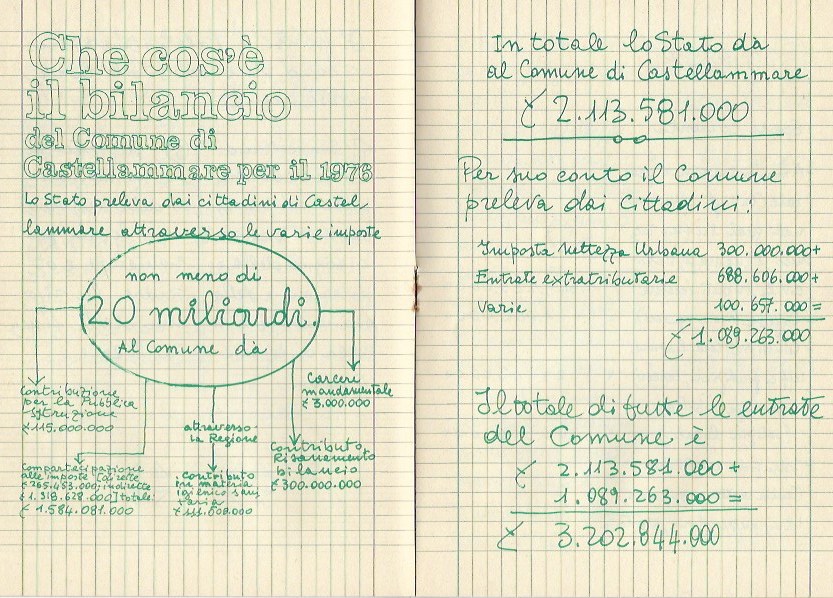 Che cos'è
il bilancio
del Comune di
Castellammare per il 1976
Lo Stato preleva dai cittadini di Castel,
lammare attraverso le varie imposte
non meno di
20 miliardi.
Al Comune dà
Contribuzione
per la Pubblica
Istruzione
£ 115.000.000
Compartecipazione
alle imposte (dirette
£ 265.453.000, indirette
£ 1.318.628.000) totale:
£ 1.584.081.000
attraverso
la Regione
Contributo
in materia
igienico sani
taria
£ 111.500.000
Contributo
Risanamento
bilancio
£ 300.000.000
Carcere
mandamentale
£ 3.000.000
In totale lo Stato dà
al Comune di Castellammare
£ 2.113.581.000
Per suo conto il Comune
preleva dai cittadini:
Imposta nettezza Urbana 300.000.000+
Entrate extratributarie 688.606.000+
Varie 100.657.000=
£ 1.089.263.000
Il totale di tutte le entrate
del Comune è
£ 2.113.581.000+
1.089.263.000=
£ 3.202.844.000